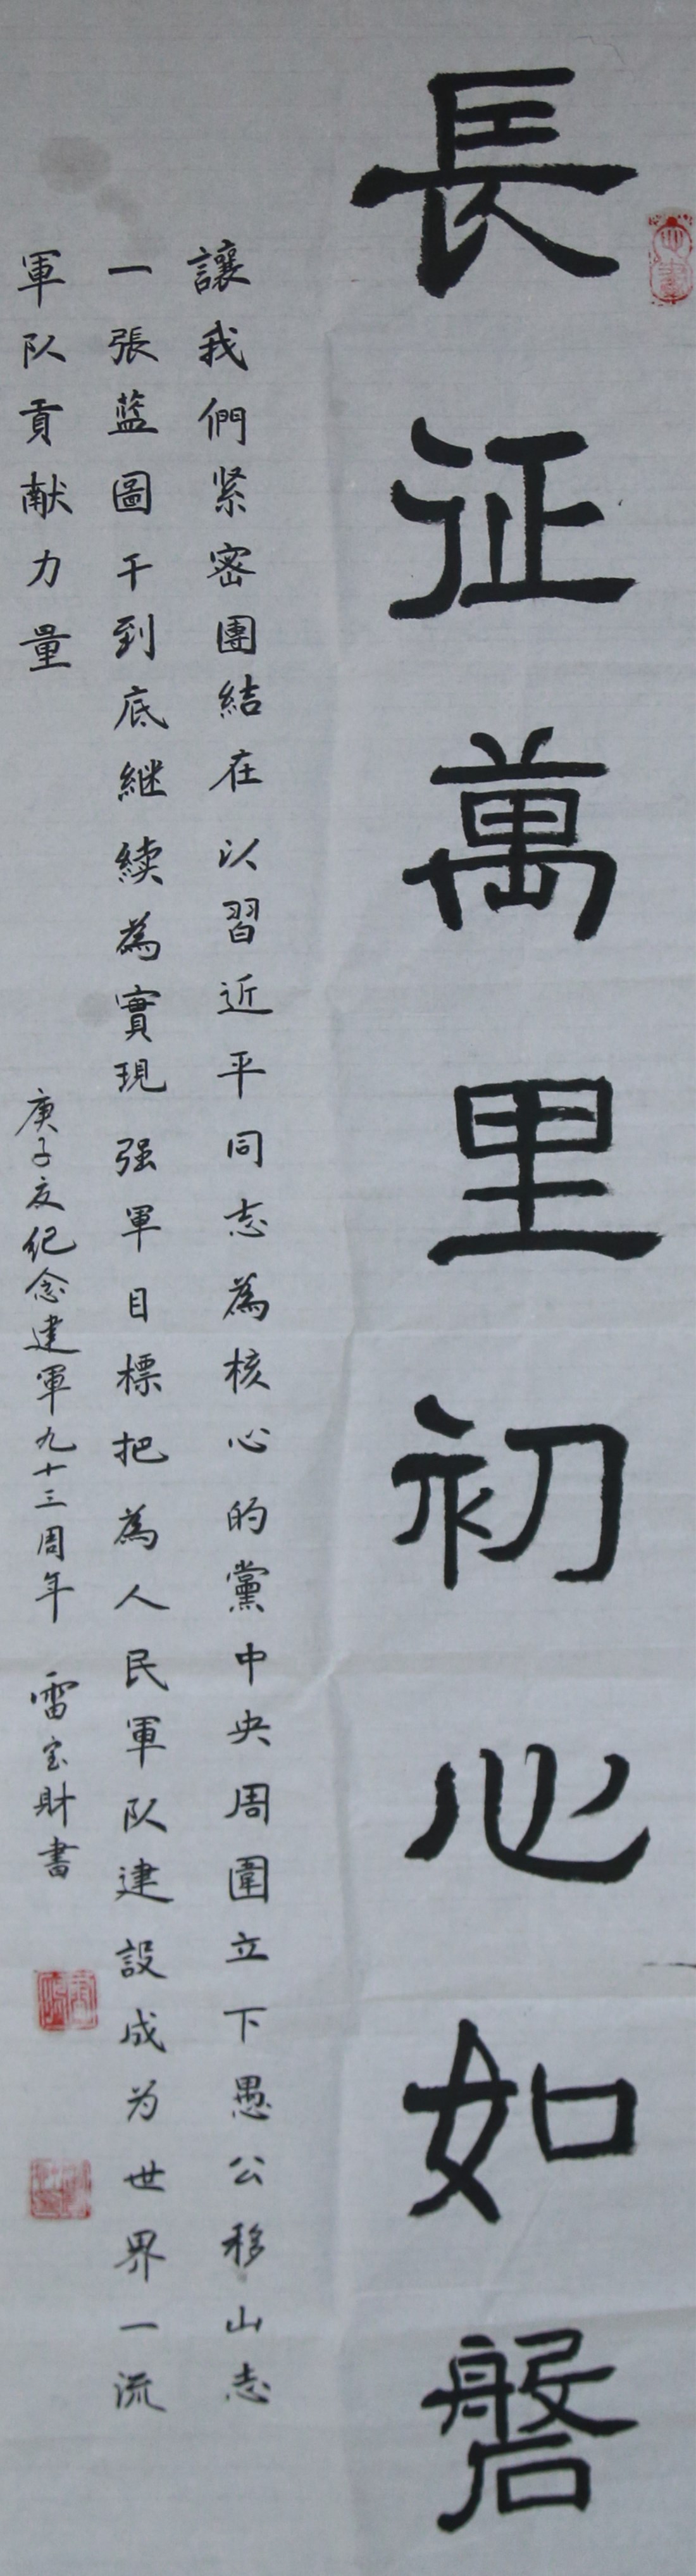 長征萬里初心如磐
讓我們紧密團結在以習近平同志為核心的黨中央周圍立下愚公移山志
一張蓝圖干到底継续為實現强軍目標把為人民軍队建設成为世界一流
軍队貢献力量
庚子夏纪念建軍九十三周年 雷宝財書